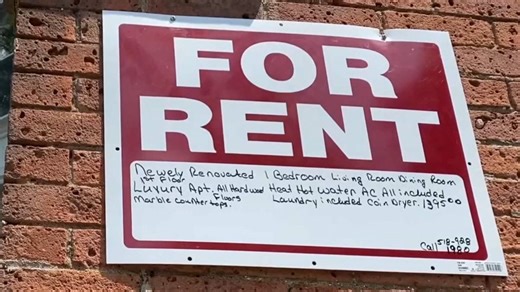 FOR
RENT
Newely Renovated 1 Bedroom Living Room Dining Room
1st Floor
Luxury Apt. All Hardwood Heat Hot Water AC All included
Floors
Marble counter tops. Laundry included Coin Dryer. 139500
Call 518-988
1980